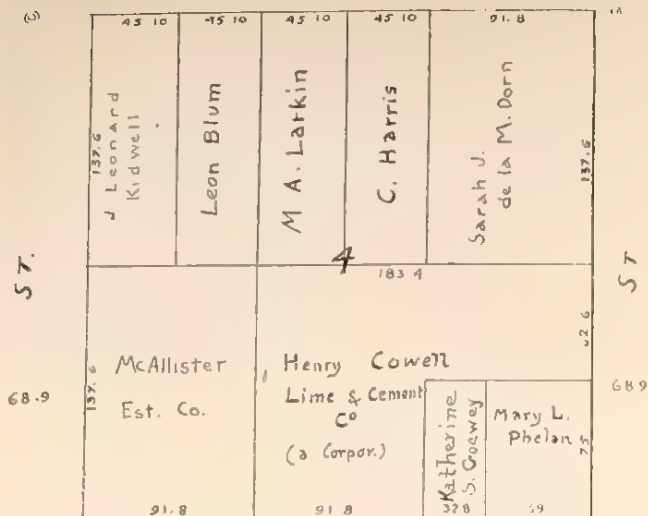 45 10
45 10
45 10
45 10
91.8
137.6
J Leonard
Kidwell
Leon Blum
M A. Larkin
C. Harris
Sarah J.
de la M. Dorn
137.6
ST.
4
183 4
ST
62 6
137.6
McAllister
Est. Co.
68.9
Henry Cowell
Lime & Cement
Co
(a Corpor.)
Katherine
Mary L.
Phelan
75
68.9
91.8
91.8
32 8
59